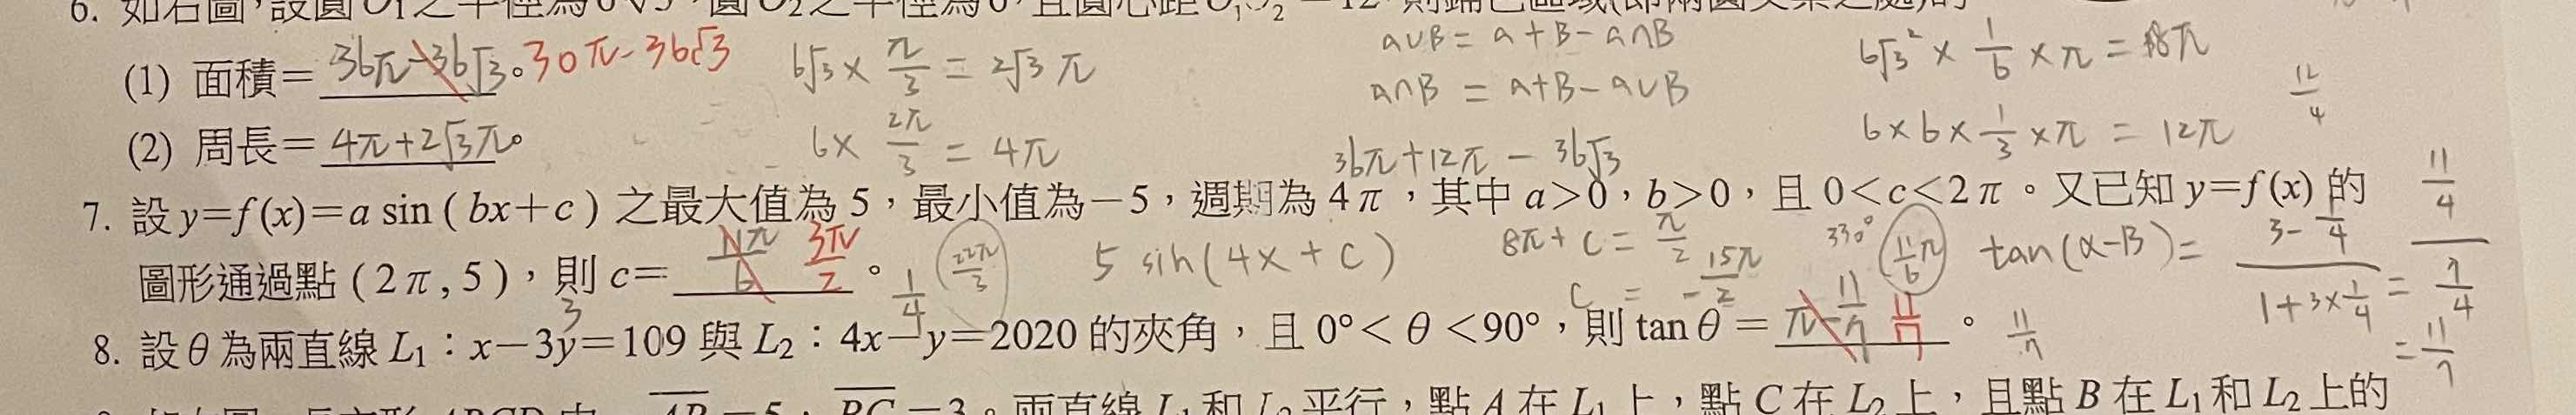 6. 如右圖，設圓O₁之半徑為6√3，圓O₂之半徑為6，且圓心距O₁O₂=12，則鋪色區域(即兩圓交集之處)的
(1) 面積= 36π-36√3。30π-36√3
6√3 × π/3 = 2√3 π
a∪B = a+B-a∩B
a∩B = a+B-a∪B
6√3² × 1/6 × π = 18π
12/4
(2) 周長= 4π+2√3π。
6× 2π/3 = 4π
36π+12π - 36√3
6×6× 1/3 ×π = 12π
7. 設y=f(x)=a sin(bx+c) 之最大值為5，最小值為-5，週期為4π，其中a>0，b>0，且0<c<2π。又已知y=f(x)的
圖形通過點(2π,5)，則c= 11π/6 3π/2 。
1/4
22π/3
5 sin(4x+c)
8π+c= π/2
c = -15π/2
330°
11/6 π
tan(α-B)= (3-1/4)/(1+3×1/4) = (11/4)/(7/4)
= 11/7
3
8. 設θ為兩直線L₁：x-3y=109與L₂：4x-y=2020的夾角，且0°<θ<90°，則tanθ= π-11/7 11/7 。
11/7
AB=5，BC=3。兩直線L₁和L₂平行，點A在L₁上，點C在L₂上，且點B在L₁和L₂上的